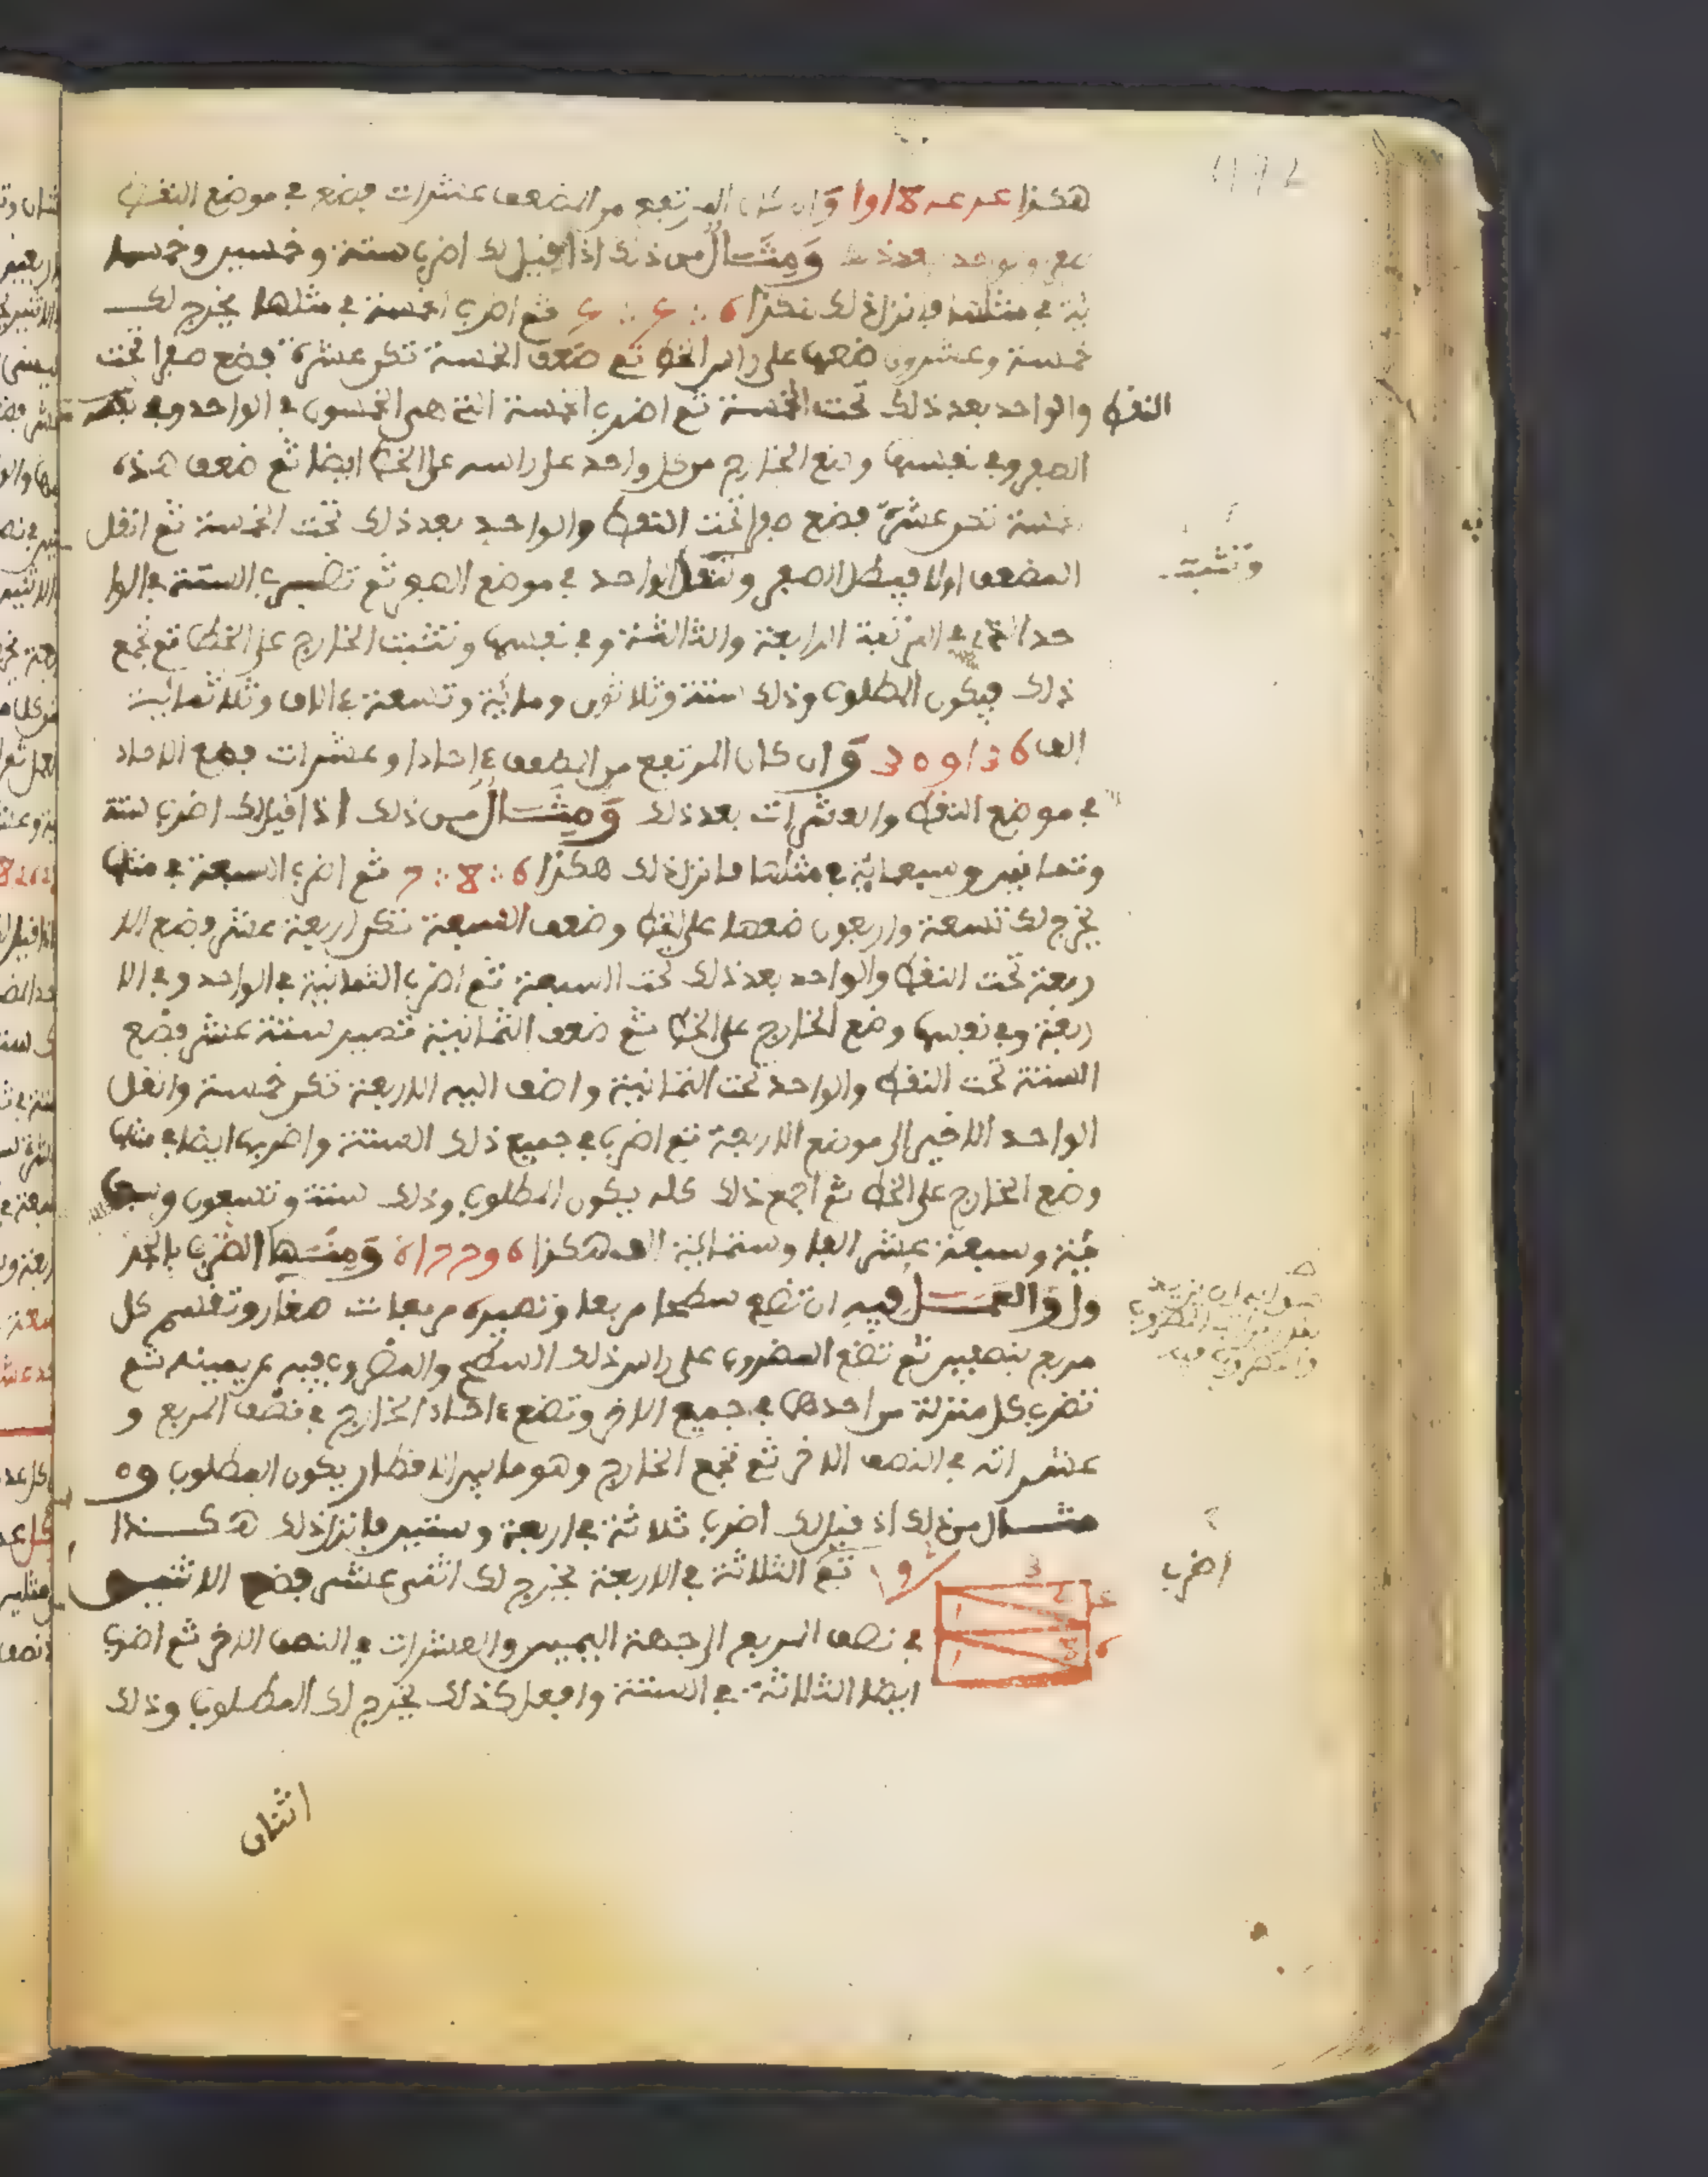 هكذا وان كان المرتفع من التضعيف عشرات فضع في موضع النقط
صفر والواحد بعد ذلك ومثال من ذلك اذا قيل لك اضرب ستة وخمسين وخمسما
ئة في مثلها فانزل ذلك هكذا 6 ∴ 5 ∴ 5 ثم اضرب الخمسة في مثلها يخرج لك
خمسة وعشرون ضعها على راس الخط ثم ضعف الخمسة تكن عشرة فضع صفرا تحت
النقط والواحد بعد ذلك تحت الخمسة ثم اضرب الخمسة التي هي الخمسون في الواحد وفي
الصفر وفي نفسها وضع الخارج من كل واحد على راسه على الخط ايضا ثم ضعف هذه
الخمسة تكن عشرة فضع صفرا تحت النقط والواحد بعد ذلك تحت الخمسة ثم انقل
المضعف اولا فيبطل الصفر وتنقل الواحد في موضع الصفر ثم تضرب الستة في الوا
حد التي في المرتبة الرابعة والثالثة وفي نفسها وتثبت الخارج على الخط ثم تجمع
ذلك فيكون المطلوب وذلك ستة وثلاثون ومائة وتسعة ءالاف وثلاثمائة
الف 309136 وان كان المرتفع من التضعيف ءاحادا وعشرات فضع الاحاد
في موضع النقط والعشرات بعد ذلك ومثال من ذلك اذا قيل لك اضرب ستة
وثمانين وسبعمائة في مثلها فانزل ذلك هكذا 6 ∴ 8 ∴ 7 ثم اضرب السبعة في مثلها
يخرج لك تسعة واربعون ضعها على النقط وضعف السبعة تكن اربعة عشر فضع الا
ربعة تحت النقط والواحد بعد ذلك تحت السبعة ثم اضرب الثمانية في الواحد وفي الا
ربعة وفي نفسها وضع الخارج على الخط ثم ضعف الثمانية فتصير ستة عشر فضع
الستة تحت النقط والواحد تحت الثمانية واضف اليه الاربعة تكن خمسة وانقل
الواحد الاخير الى موضع الاربعة ثم اضرب في جميع ذلك الستة واضربها ايضا في مثلها
وضع الخارج على الخط ثم اجمع ذلك كله يكون المطلوب وذلك ستة وتسعون وسبعما
ئة وسبعة عشر الفا وستمائة الف هكذا 617796 ومنها الضرب بالجد
ول والعمل فيه ان تضع سطحا مربعا وتصيره مربعات صغار وتقسم كل
مربع بنصفين ثم تضع المضروب على راس ذلك السطح والمضروب فيه عن يمينه ثم
تضرب كل منزلة من احدهما في جميع الاخر وتضع ءاحاد الخارج في نصف المربع و
عشراته في النصف الاخر ثم تجمع الخارج وهو ما بين الاقطار يكون المطلوب و
مثال من ذلك اذ قيل لك اضرب ثلاثة في اربعة وستين فانزل ذلك هكذا
ثم الثلاثة في الاربعة يخرج لك اثنى عشر فضع الاثنين
في نصف المربع الى جهة اليمين والعشرات في النصف الاخر ثم اضرب
ايضا الثلاثة في الستة وافعل كذلك يخرج لك المطلوب وذلك
اثنان
وتثبت
اضرب